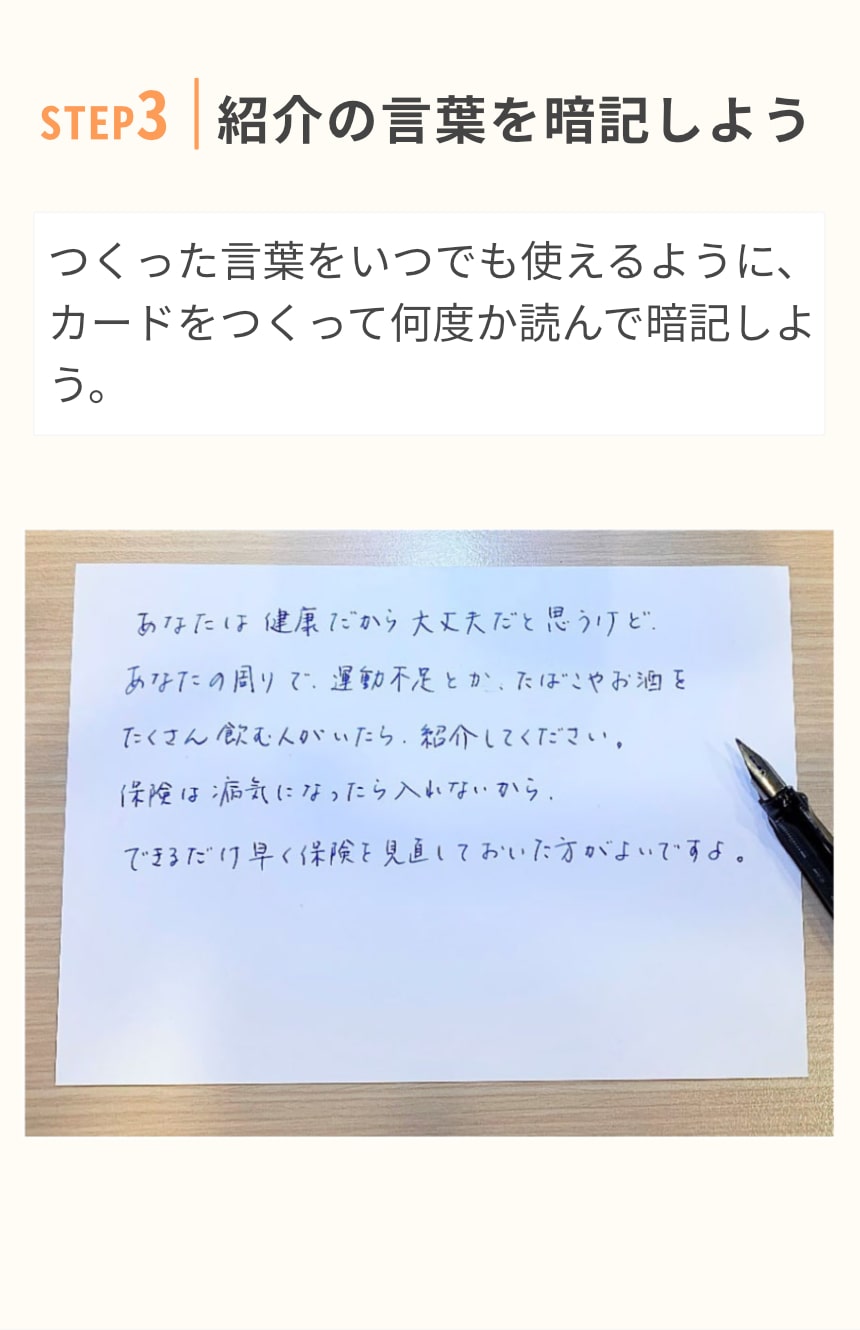 STEP3 紹介の言葉を暗記しよう
つくった言葉をいつでも使えるように、
カードをつくって何度か読んで暗記しよ
う。
あなたは健康だから大丈夫だと思うけど、
あなたの周りで、運動不足とか、たばこやお酒を
たくさん飲む人がいたら、紹介してください。
保険は病気になったら入れないから、
できるだけ早く保険を見直しておいた方がよいですよ。